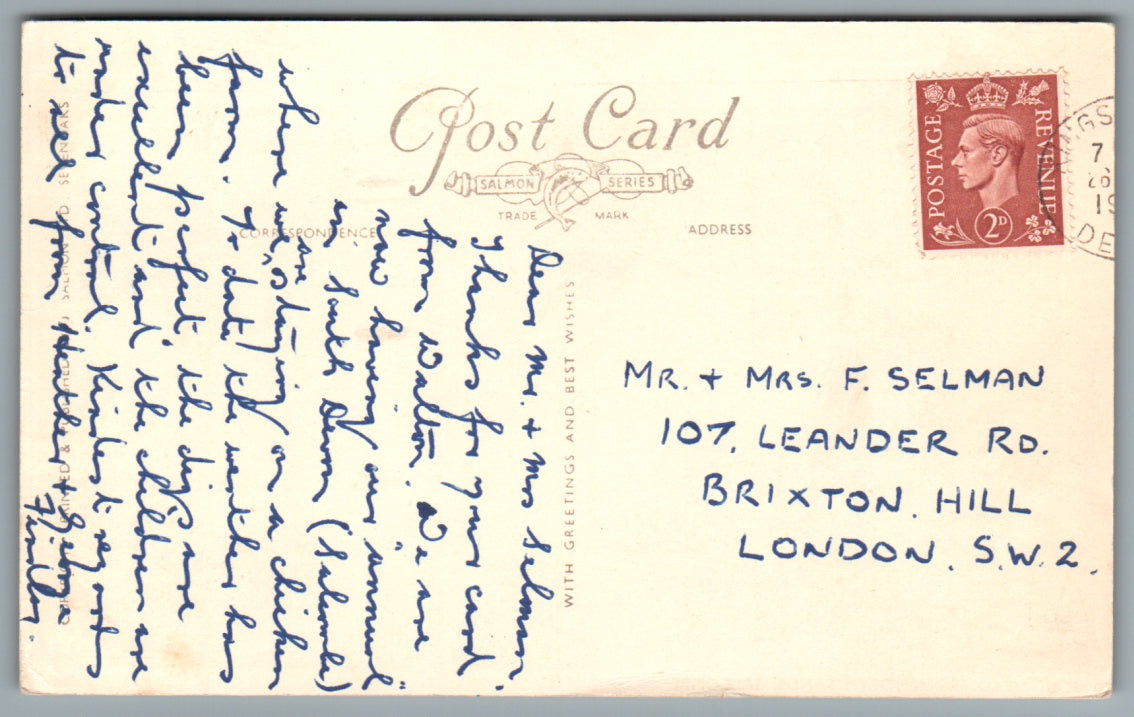 Post Card
SALMON SERIES
TRADE MARK
CORRESPONDENCE
ADDRESS
POSTAGE
REVENUE
2D
GS
7
26
19
DE
WITH GREETINGS AND BEST WISHES
Dear Mr. + Mrs Selman.
Thanks for your card
from Walton. We are
now having our annual
in South Devon (Salcombe)
where we are staying on a chicken
farm. To date the weather has
been perfect, the digs are
excellent and the children are
under control. Kindest regards
to all from Heather + George
Findlay.
MR. + MRS. F. SELMAN
107, LEANDER RD.
BRIXTON HILL
LONDON. S.W.2.